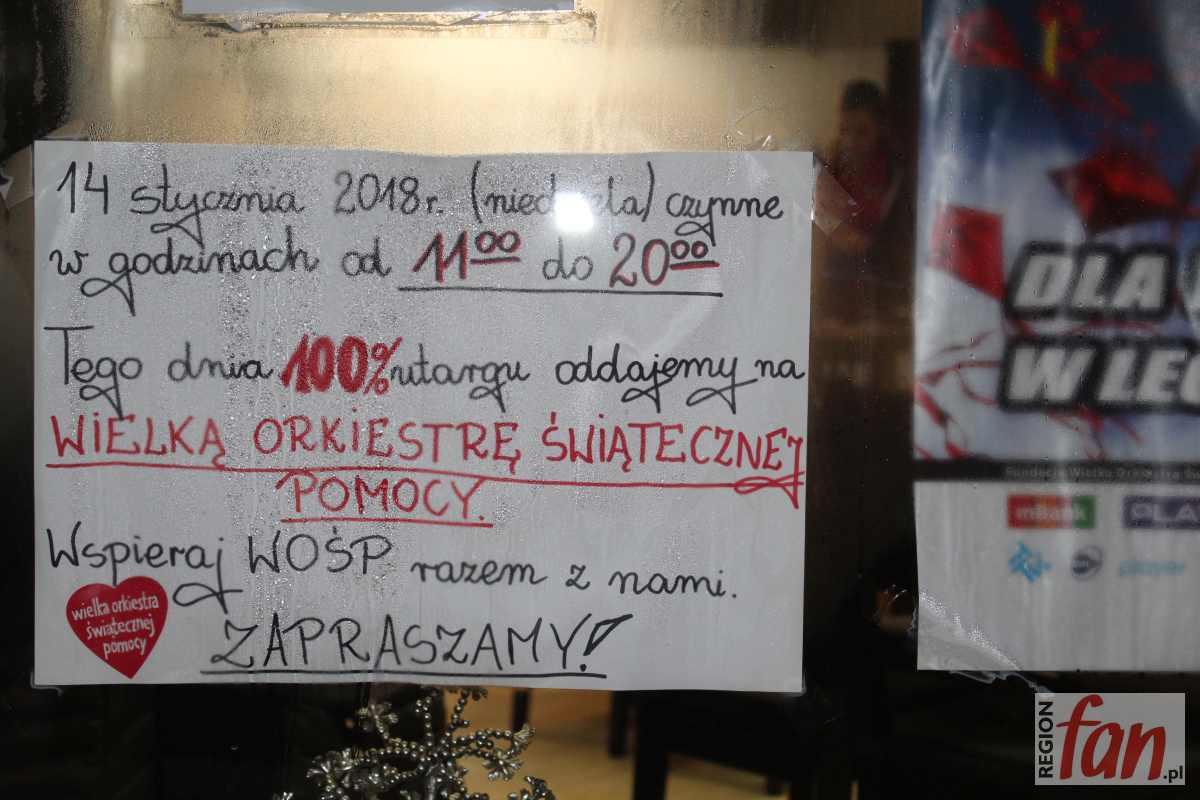 14 stycznia 2018r. (niedziela) czynne
w godzinach od 11⁰⁰ do 20⁰⁰
Tego dnia 100% utargu oddajemy na
WIELKĄ ORKIESTRĘ ŚWIĄTECZNEJ
POMOCY.
Wspieraj WOŚP razem z nami.
wielka orkiestra
świątecznej
pomocy
ZAPRASZAMY!
DLA
W
mBank
REGION
fan.pl